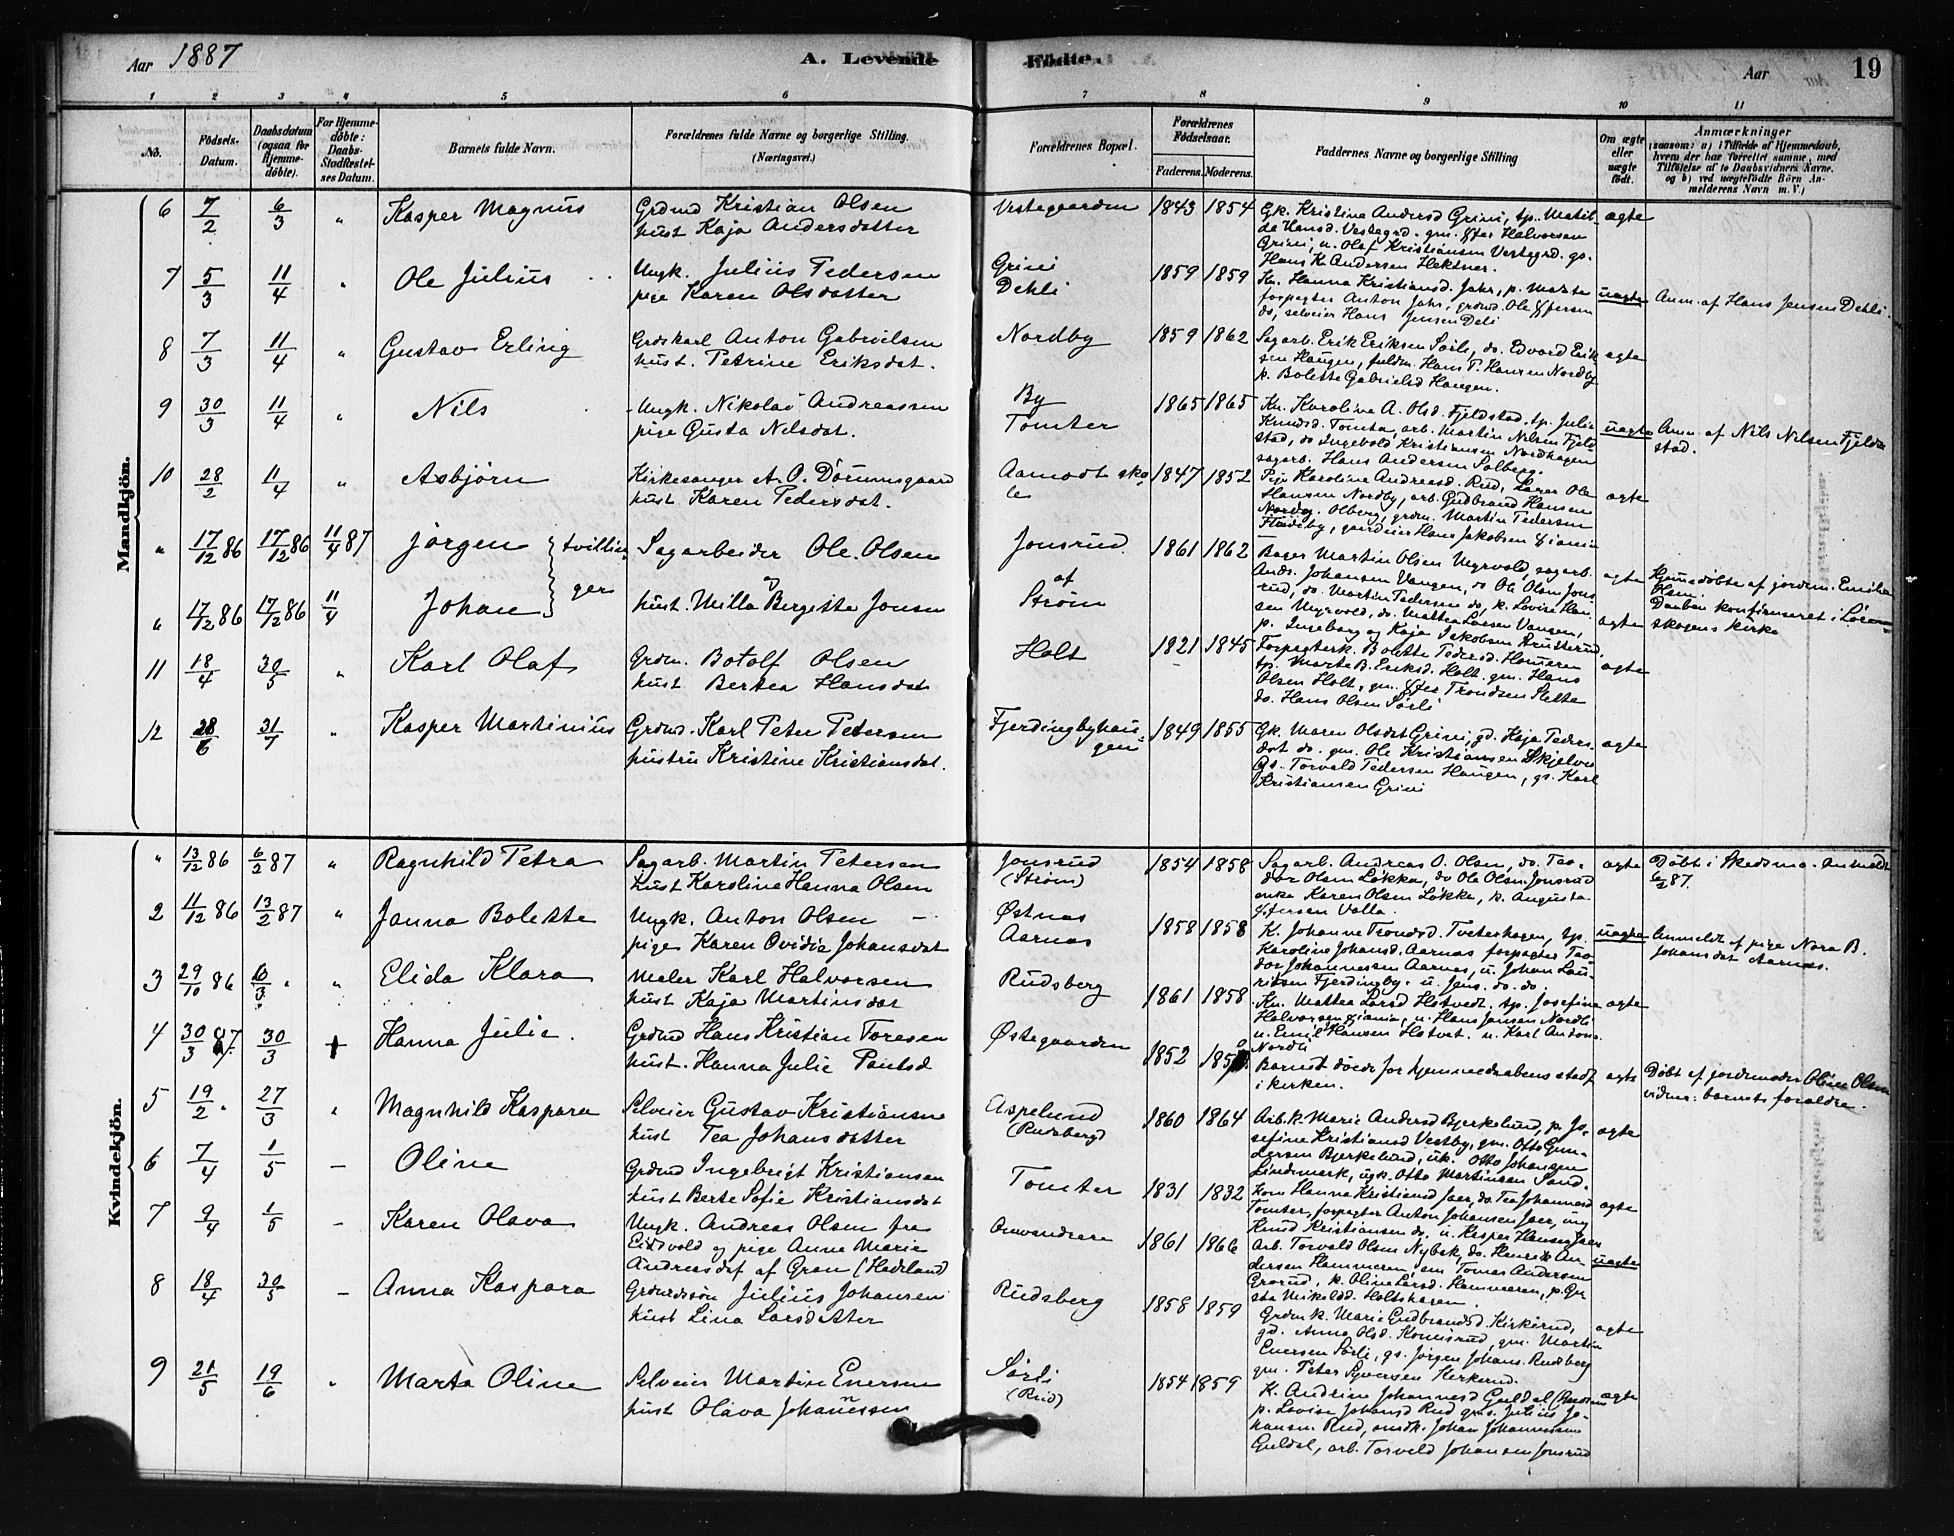 Aar 1887
A. Levende Födte.
Aar
19
1 2 3 4 5 6 7 8 9 10 11
No.
Födsels-Datum.
Daabsdatum (ogsaa for Hjemmedöbte).
For Hjemmedöbte: Daabs-Stadfæstelses Datum.
Barnets fulde Navn.
Forældrenes fulde Navne og borgerlige Stilling. (Næringsvei.)
Forældrenes Bopæl.
Forældrenes Födselsaar.
Faderens. Moderens.
Faddernes Navne og borgerlige Stilling
Om ægte eller uægte födt.
Anmærkninger
(saasom: a) i Tilfælde af Hjemmedaab, hvem der har forrettet samme, med Tilföielse af to Daabsvidners Navne, og b) ved uægtefödte Börn Anmelderens Navn m. V.)
Mandkjön.
6 7/2 6/3 " Kasper Magnus
Grdmd Kristian Olsen
hust Kaja Andersdatter
Vestegaarden 1843 1854
Gk. Kristine Andersd Grini, tp. Matil-
de Hansd. Vestegrd. gm. Efter Halvorsen
Grini, u. Olaf Kristiansen Vestgrd. gs.
Hans K. Andersen Hektner.
ægte
7 5/3 11/4 " Ole Julius
Ungk. Julius Pedersen
pige Karen Olsdatter
Grini
Dehli
1859 1859
Kn. Hanna Kristiansd. Jahr, p. Marte
forpagter Anton Jahr, grdmd. Ole
do, selveier Hans Jensen Deli
uægte
Anm. af Hans Jensen Dehli.
8 7/3 11/4 " Gustav Erling
Grdskarl Anton Gabrielsen
hust. Petrine Eriksdat.
Nordby 1859 1862
Sagarb. Erik Eriksen Sörli, do. Edvard Erik
sen Haugen, fuldm. Hans P. Hansen Nordby
p. Bolette Gabrielsd Haugen.
ægte
9 30/3 11/4 " Nils
Ungk. Nikolai Andreassen
pige Gusta Nilsdat.
By
Tomter
1865 1865
Kn. Karoline A. Olsd. Fjeldstad, tp. Julie
Knudsd. Tomta, arb. Martin Nilsen Fjeld
stad, do Ingebold Kristiansen Nordhagen
sagarb. Hans Andersen Solberg.
uægte
Anm. af Nils Nilsen Fjeld-
stad.
10 28/2 11/4 " Asbjörn
Kirkesanger A. O. Dörumsgaard
hust Karen Pedersdat.
Aamodt sko
le
1847 1852
Pige Karoline Andreasd. Rud, Lærer Ole
Hansen Nordby, arb. Gudbrand Hansen
Nordby. Olberg, grdm. Martin Pedersen
Hans Jakobsen
ægte
" 17/12 86 17/12 86 11/4 87 Jörgen
tvillin-
ger
Sagarbeider Ole Olsen
Jonsrud 1861 1862
Bager Martin Olsen Myrvold, sagarb.
Ands. Johansen Vangen, do Ole Olsen Jons
rud, do. Martin Pedersen do, k. Lovise Han-
sen Myrvold, do. Mathea Larsen Vangen,
p. Ingeborg og Kaja Jakobsen
ægte
Hjemedöbte af jordem. Emilie
Olsen.
Daaben konfirmeret i Lören-
skogens kirke
" 17/12 86 17/12 86 11/4 Johan
hust. Milla Bergette Jonsen
af
Ström
ægte
11 18/4 30/5 " Karl Olaf
Grdm. Botolf Olsen
hust Berthea Hansdat
Holt 1821 1845
Forpagterk. Bolette Pedersd. Hameren
tp. Marte B. Eriksd. Holt. gm. Hans
Olsen Holt, gm. Trondsen Sletta
do. Hans Olsen Sörli
ægte
12 28/6 31/7 " Kasper Martinius
Grdmd. Karl Peter Petersen
hustru Kristine Kristiansdat.
Fjerdingbyhau-
gen
1849 1855
Gk. Maren Olsdat Grini, gd. Kaja Peders
dat do. gm. Ole Kristiansen Skjelver
Gs. Torvald Pedersen Haugen, gs. Karl
Kristiansen Grini
ægte
Kvindekjön.
" 13/12 86 6/2 87 " Ragnhild Petra
Sagarb. Martin Petersen
hust Karoline Hanna Olsen
Jonsrud
(Ström)
1854 1858
Sagarb. Andreas O. Olsen, do. Teo-
dor Olsen Lökka, do Ole Olsen Jonsrud
enke Karen Olsen Lökka, p. Augusta
Volla.
ægte
Döbt i Skedsmo. Anmeldt
6/2 87.
2 11/12 86 13/2 87 " Janna Bolette
Ungk. Anton Olsen
pige Karen Ovidia Johansdat
Østnæs
Aarnæs
1858 1858
K. Johanne Trondsd. Tveterhagen, tp.
Karoline Johansd. Aarnæs forpagter Teo
dor Johannessen Aarnæs, u. Johan Lau-
ritsen Fjerdingby. u. Jens. do. do
uægte
Anmeldt af pige Nora B.
Johansdat Aarnæs.
3 29/10 86 13/3 " " Elida Klara
Maler Karl Halvorsen
hust Kaja Martinsdat
Rudsberg
1861 1858
Kn. Mathea Larsd Hotvedt. tp. Josefine
Halvorsen, u. Hans Jansen Nordli
u. Emil Hansen Hotvet. u. Karl Antons.
Nordli
ægte
4 30/3 87. 30/3 + Hanna Julie.
Grdmd Hans Kristian Toresen
hust. Hanna Julie Paulsd
Østegaarden
1852
Barnet döde för hjemmedaabens stadf
i kirken.
ægte
Döbt af jordemoder Oline Olsen
vidner: barnets forældre.
5 19/2 " 27/3 " Magnhild Kaspara
Selveier Gustav Kristiansen
hust Tea Johansdatter
Aspelund
(Rudsberg)
1860 1864
Arb. k. Marie Andersd Bjerkelund, p. Jo-
sefine Kristiansd Vestby, gm. Otto Gun-
dersen Bjerkelund, uk. Otto Johansen
Lindsmark, ugk. Otto Martinsen Sand.
ægte
6 7/4 1/5 – Oline
Grdmd Ingebregt Kristiansen
hust Berte Sofie Kristiansdat
Tomter 1831 1832
Kone Hanna Kristiansd Jaer, do. Tea Johannesd
Tomter, forpagter Anton Johansen Jaer, ung
Knud Kristiansen do, u. Kasper Hansen Jaer
ægte
7 9/4 1/5 – Karen Olava
Ungk. Andreas Olsen fra
Eidsvold og pige Anne Marie
Andreasdat af Gran (Hadeland)
Omvandrere
1861 1866
Arb. Torvald Olsen Nybæk, do. Henrik An
dersen Hammeren, em Tomas Andersen
Grorud, k. Oline Larsd. Hammeren, p. Gu
sta Mikelsd. Holtshagen.
uægte
8 18/4 30/5 – Anna Kaspara
Grdmdssön Julius Johansen
hust Lina Larsdatter
Rudsberg
1858 1859
Grdm k. Marie Gudbrandsd. Kirkerud,
gd. Anna Olsd. Konisrud, gm. Martin
Enersen Sörli, gs. Jörgen Johans. Rudsberg
gm. Peter Syversen Kirkerud.
ægte
9 21/5 19/6 " Marta Oline
Selveier Martin Enersen
hust Olava Johannessen
Sörli
(Rud)
1854 1859
K. Andrine Johannesd Guldal
p. Lovise Johansd Rud gms. Julius Jo-
hansen Rud, Johan Johannessen
Guldal, arb. Torvald Johansen Jonsrud
ægte